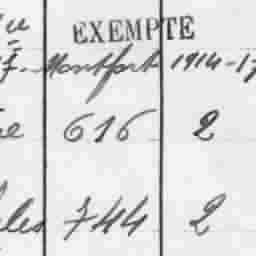 EXEMPTE
Montfort 1914-17
616 2
744 2